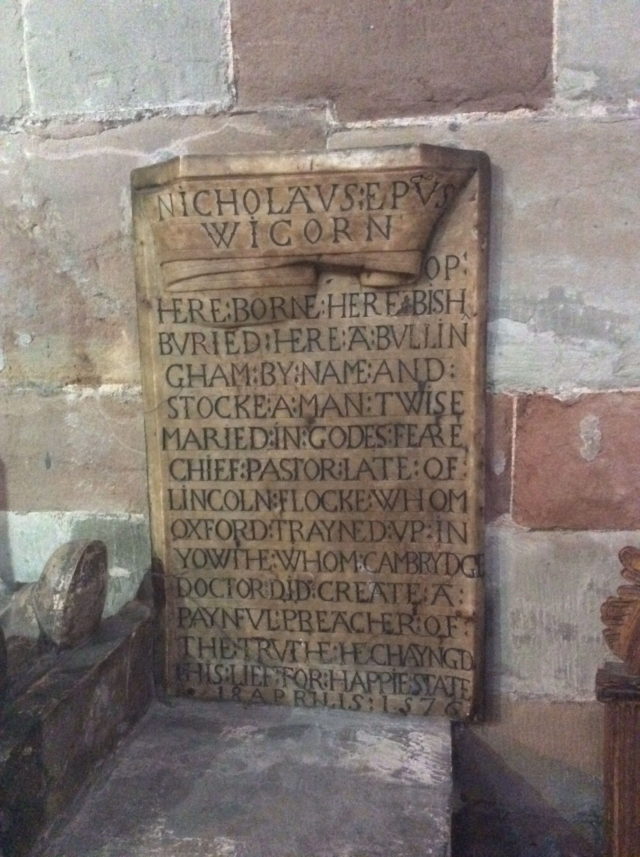 NICHOLAVS:EPVS
WIGORN
OP:
HERE:BORNE:HERE:BISH
BVRIED:HERE:A:BVLLIN
GHAM:BY:NAME:AND:
STOCKE:A:MAN:TWISE
MARIED:IN:GODES:FEARE
CHIEF:PASTOR:LATE:OF:
LINCOLN:FLOCKE:WHOM
OXFORD:TRAYNED:VP:IN
YOWTHE:WHOM:CAMBRYDGE
DOCTOR:DID:CREATE:A:
PAYNFVL:PREACHER:OF:
THE:TRVTHE:HE:CHAYNGD
THIS:LIEF:FOR:HAPPIE:STATE
18:APRILIS:1576